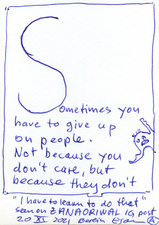 Sometimes you
have to give up
on people.
Not because you
don't care, but
because they don't
"I have to learn to do that"
seen on ZANAORIWAL IG post
20 XI 2021